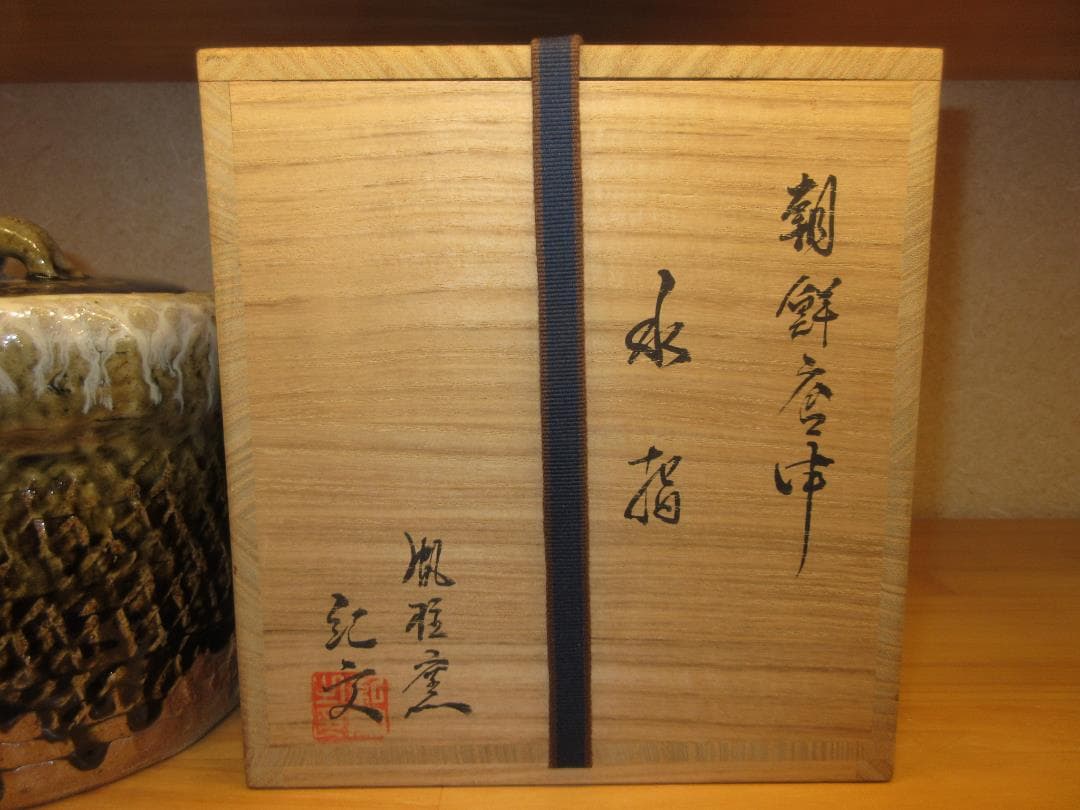 朝鮮唐津
水指
窯
紀文